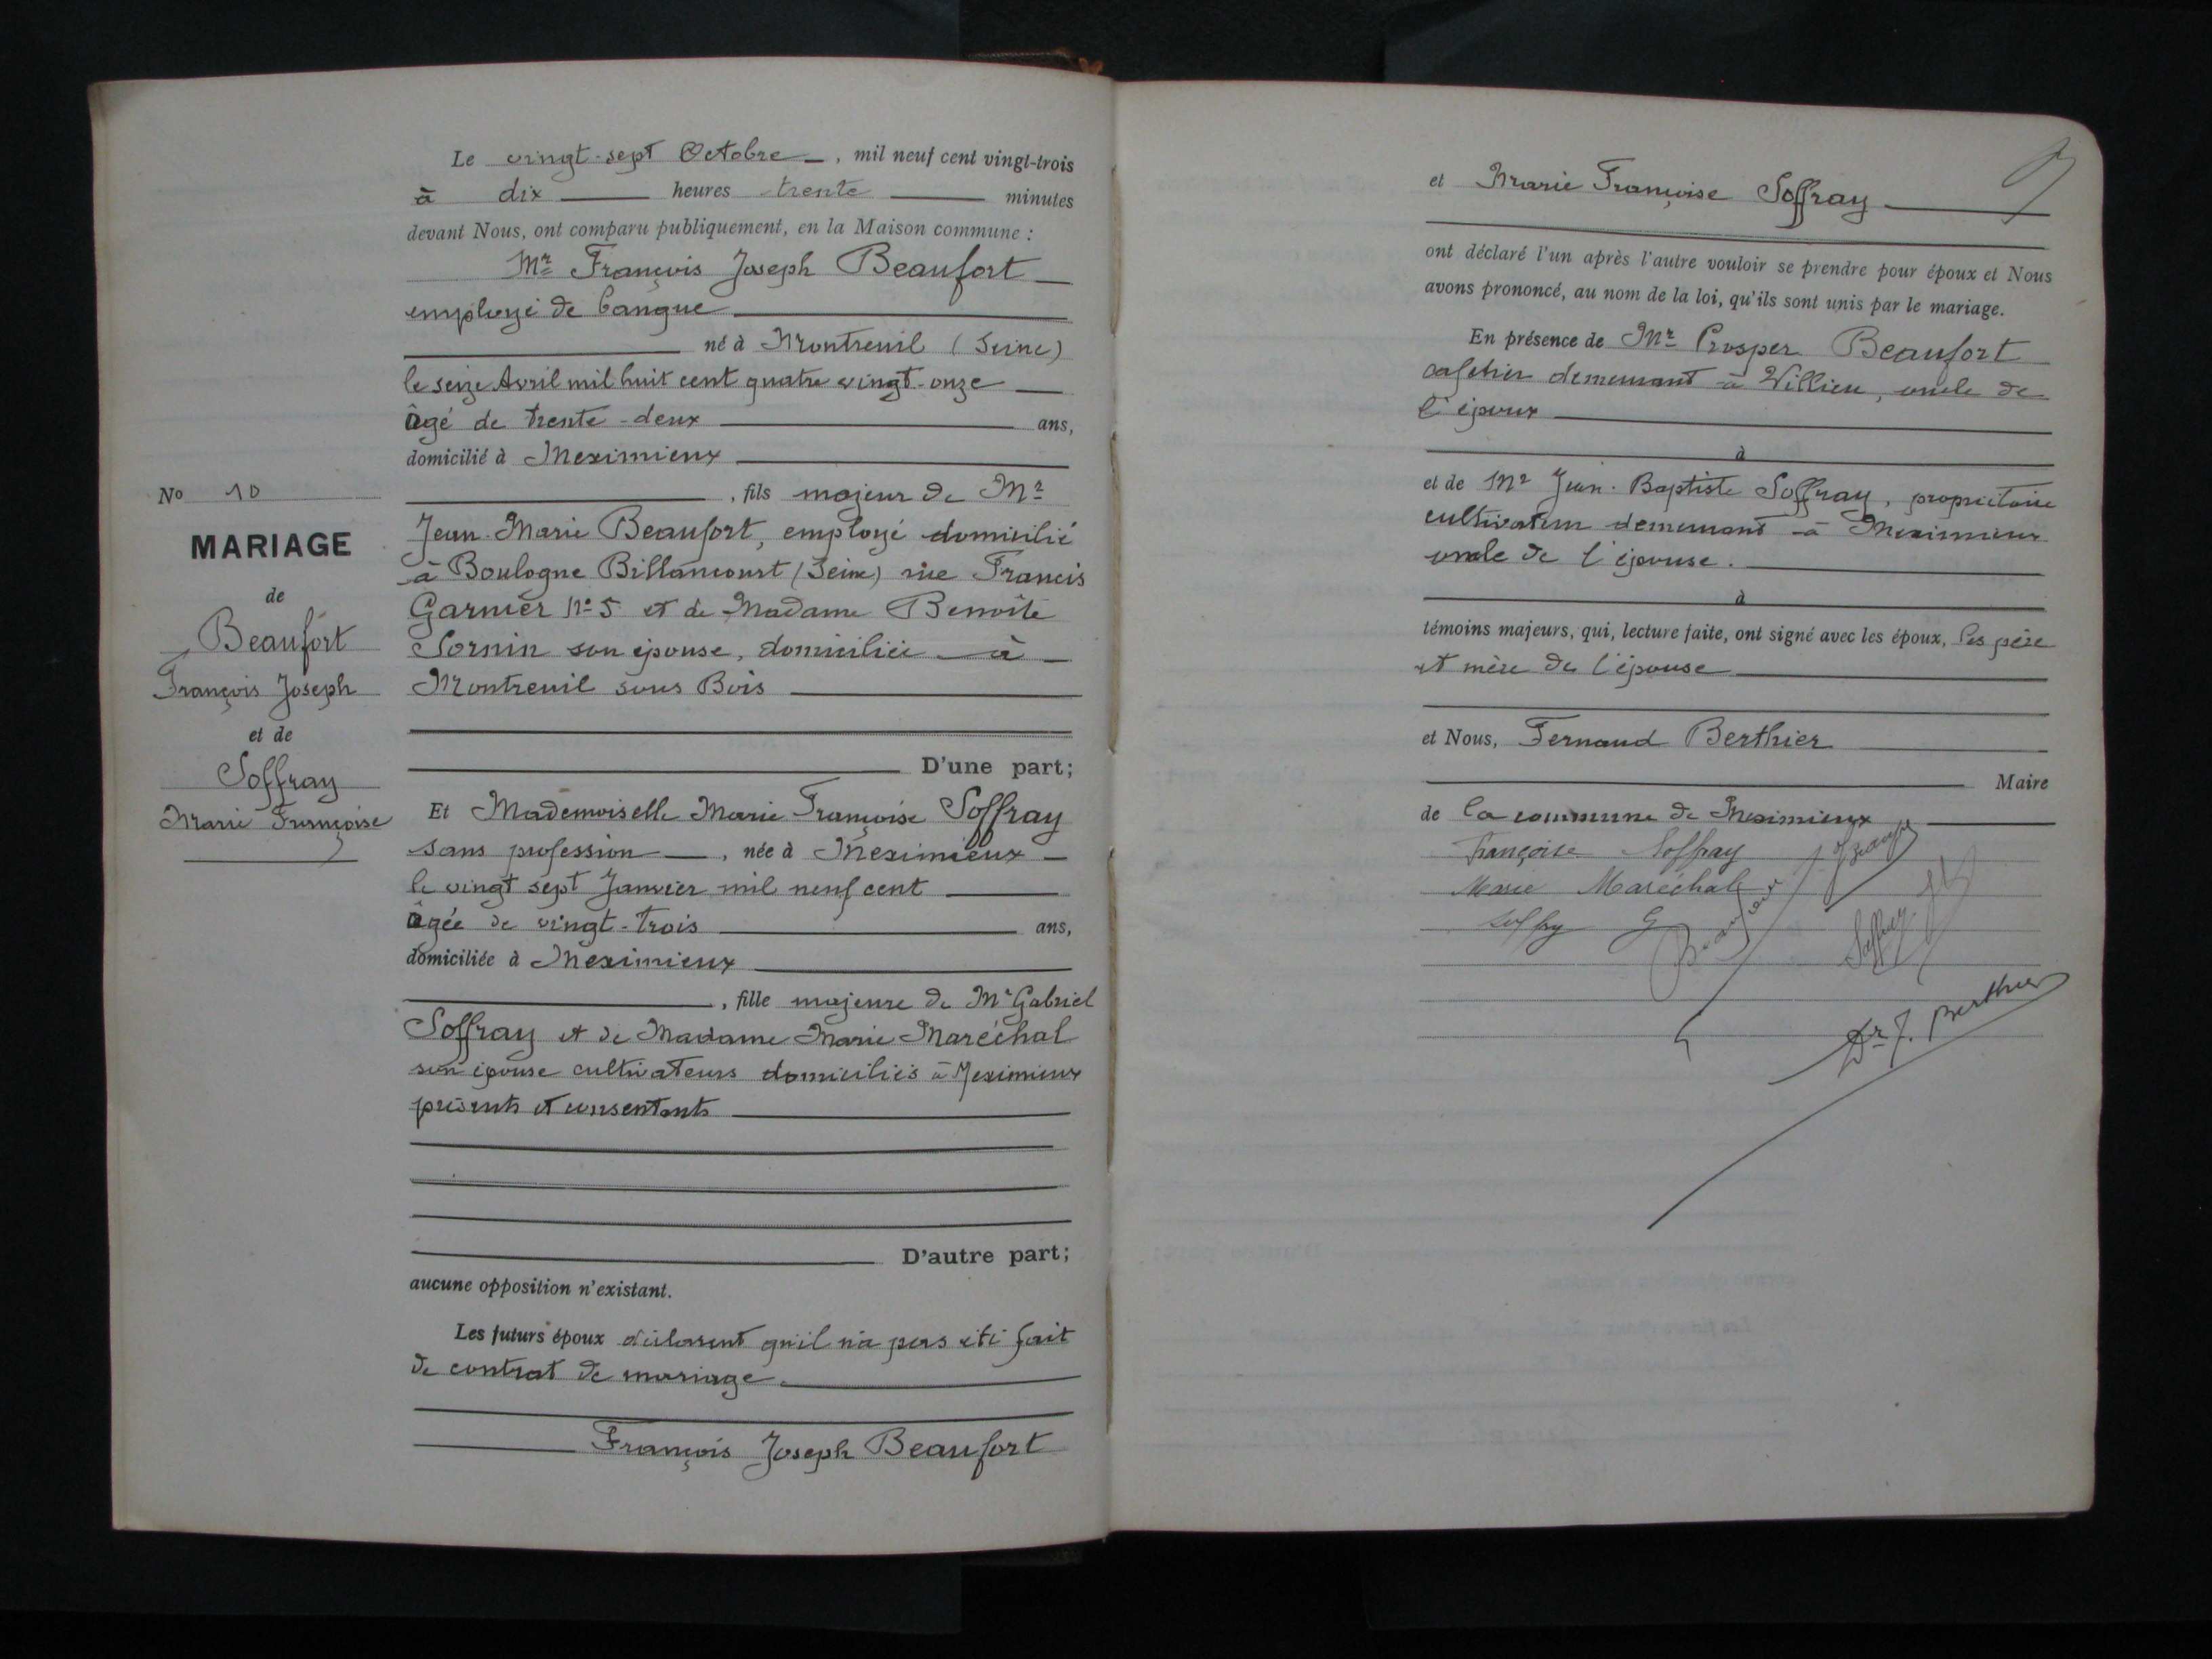 Le vingt-sept Octobre, mil neuf cent vingt-trois
à dix heures trente minutes
devant Nous, ont comparu publiquement, en la Maison commune :
Mr François Joseph Beaufort
employé de banque
né à Montreuil (Seine)
le seize Avril mil huit cent quatre vingt-onze
âgé de trente-deux ans,
domicilié à Meximieux
No 10
, fils majeur de Mr
MARIAGE
Jean-Marie Beaufort, employé domicilié
à Boulogne Billancourt (Seine) rue Francis
de
Garnier No 5 et de Madame Benoîte
Beaufort
Sornin son épouse, domiciliée à
François Joseph
Montreuil sous Bois
et de
Soffray
D'une part;
Marie Françoise
Et Mademoiselle Marie Françoise Soffray
sans profession, née à Meximieux
le vingt sept Janvier mil neuf cent
âgée de vingt-trois ans,
domiciliée à Meximieux
, fille majeure de Mr Gabriel
Soffray et de Madame Marie Maréchal
son épouse cultivateurs domiciliés à Meximieux
présents et consentants
D'autre part;
aucune opposition n'existant.
Les futurs époux déclarent qu'il n'a pas été fait
de contrat de mariage.
François Joseph Beaufort
et Marie Françoise Soffray
ont déclaré l'un après l'autre vouloir se prendre pour époux et Nous
avons prononcé, au nom de la loi, qu'ils sont unis par le mariage.
En présence de Mr Prosper Beaufort
cafetier demeurant à Villieu, oncle de
l'époux
à
et de Mr Jean-Baptiste Soffray, propriétaire
cultivateur demeurant à Meximieux
oncle de l'épouse.
à
témoins majeurs, qui, lecture faite, ont signé avec les époux, les père
et mère de l'épouse
et Nous, Fernand Berthier
Maire
de la commune de Meximieux
Françoise Soffray
Marie Maréchal
Soffray G
Beaufort
Soffray
Dr F. Berthier